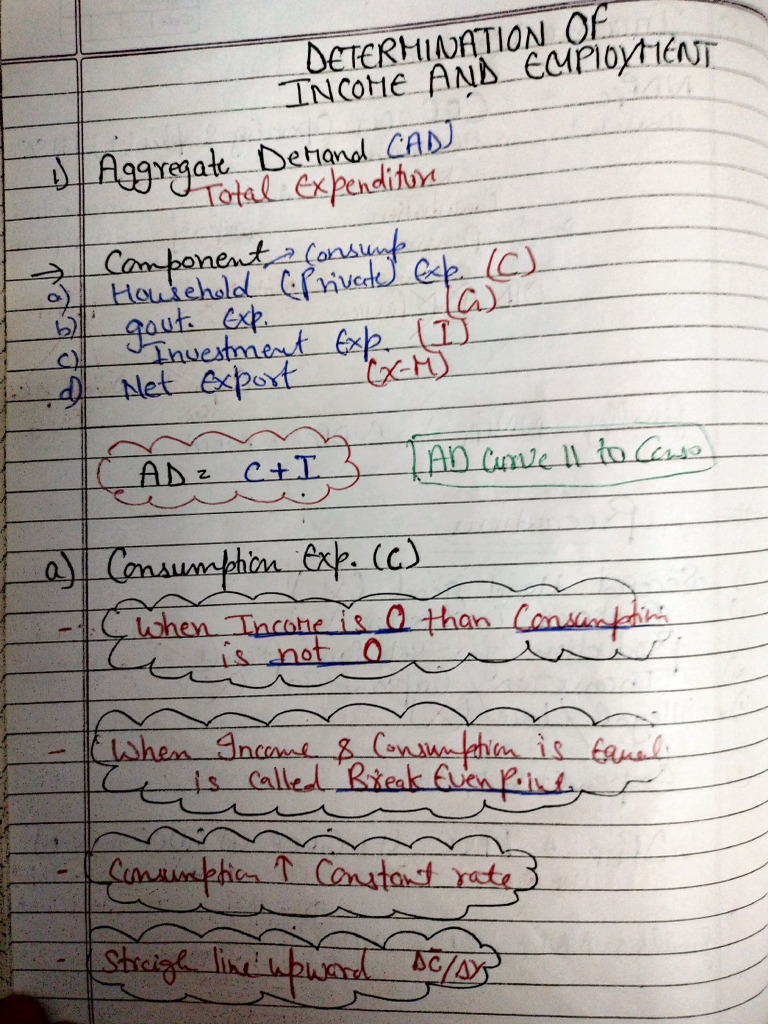 DETERMINATION OF
INCOME AND EMPLOYMENT
1) Aggregate Demand (AD)
Total Expenditure
→ Component → Consump
a) Household (Private) Exp. (C)
b) govt. Exp. (G)
c) Investment Exp. (I)
d) Net Export (X-M)
AD = C + I
AD Curve || to
a) Consumption Exp. (C)
- When Income is 0 than Consumption
is not 0
- When Income & Consumption is Equal
is called Break Even Point.
- Consumption ↑ Constant rate
- Straigh line upward ΔC/ΔY